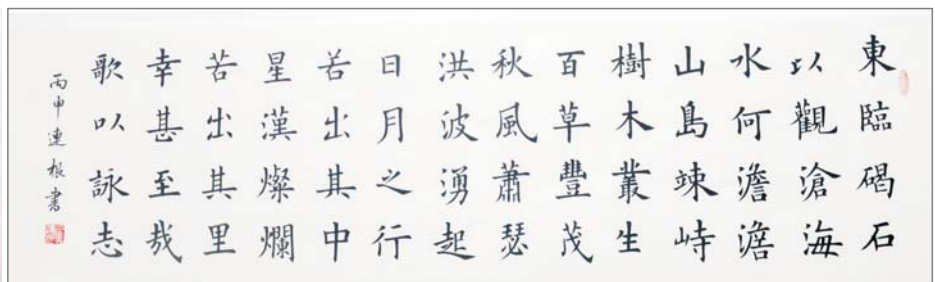 東臨碣石
以觀滄海
水何澹澹
山島竦峙
樹木叢生
百草豐茂
秋風蕭瑟
洪波湧起
日月之行
若出其中
星漢燦爛
若出其里
幸甚至哉
歌以詠志
丙申連根書